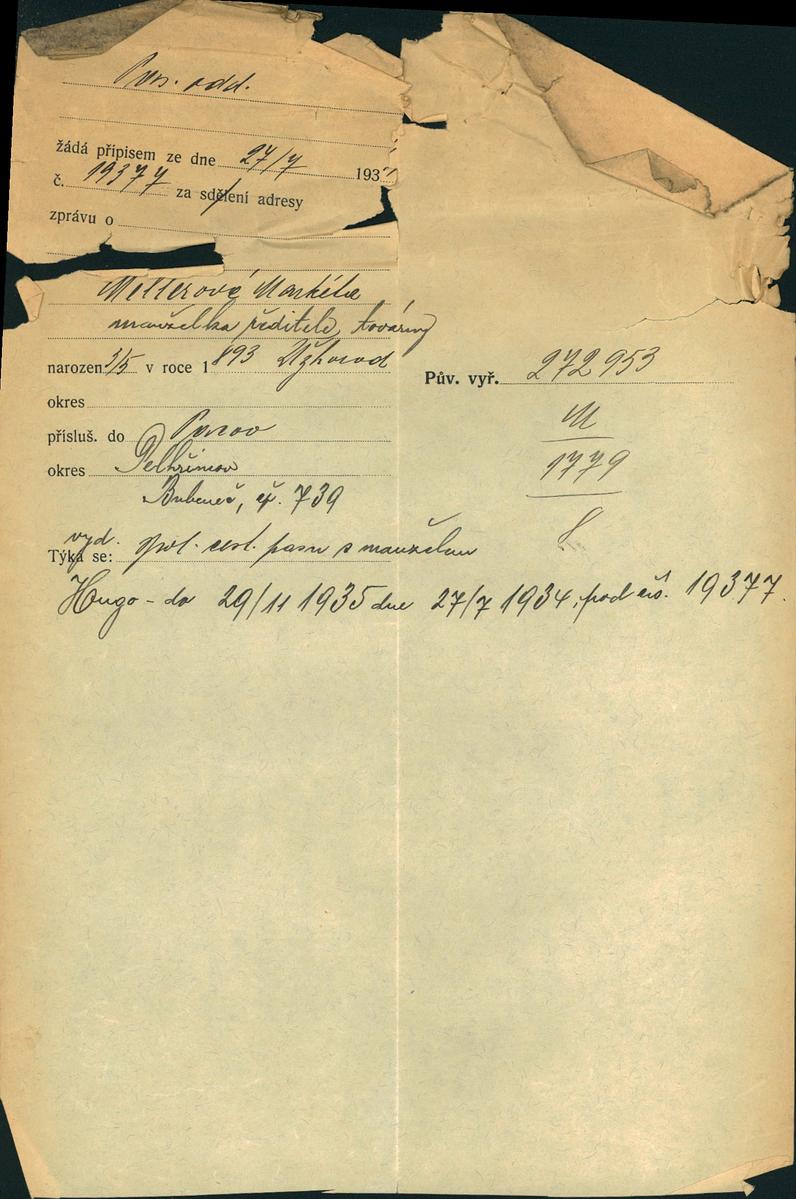 Pas. odd.
žádá přípisem ze dne 27/7 193
č. 19377 za sdělení adresy
zprávu o
Mellerové Markéta
manželka ředitele továrny
narozen 3/5 v roce 1893 Užhorod
okres
přísluš. do
okres Pelhřimov
Bubeneč, čp. 739
vyd.
Týká se: spol. cest. pasu s manželem
Hugo - do 29/11 1935 dne 27/7 1934, pod čís. 19377.
Pův. vyř. 272953
M
1779